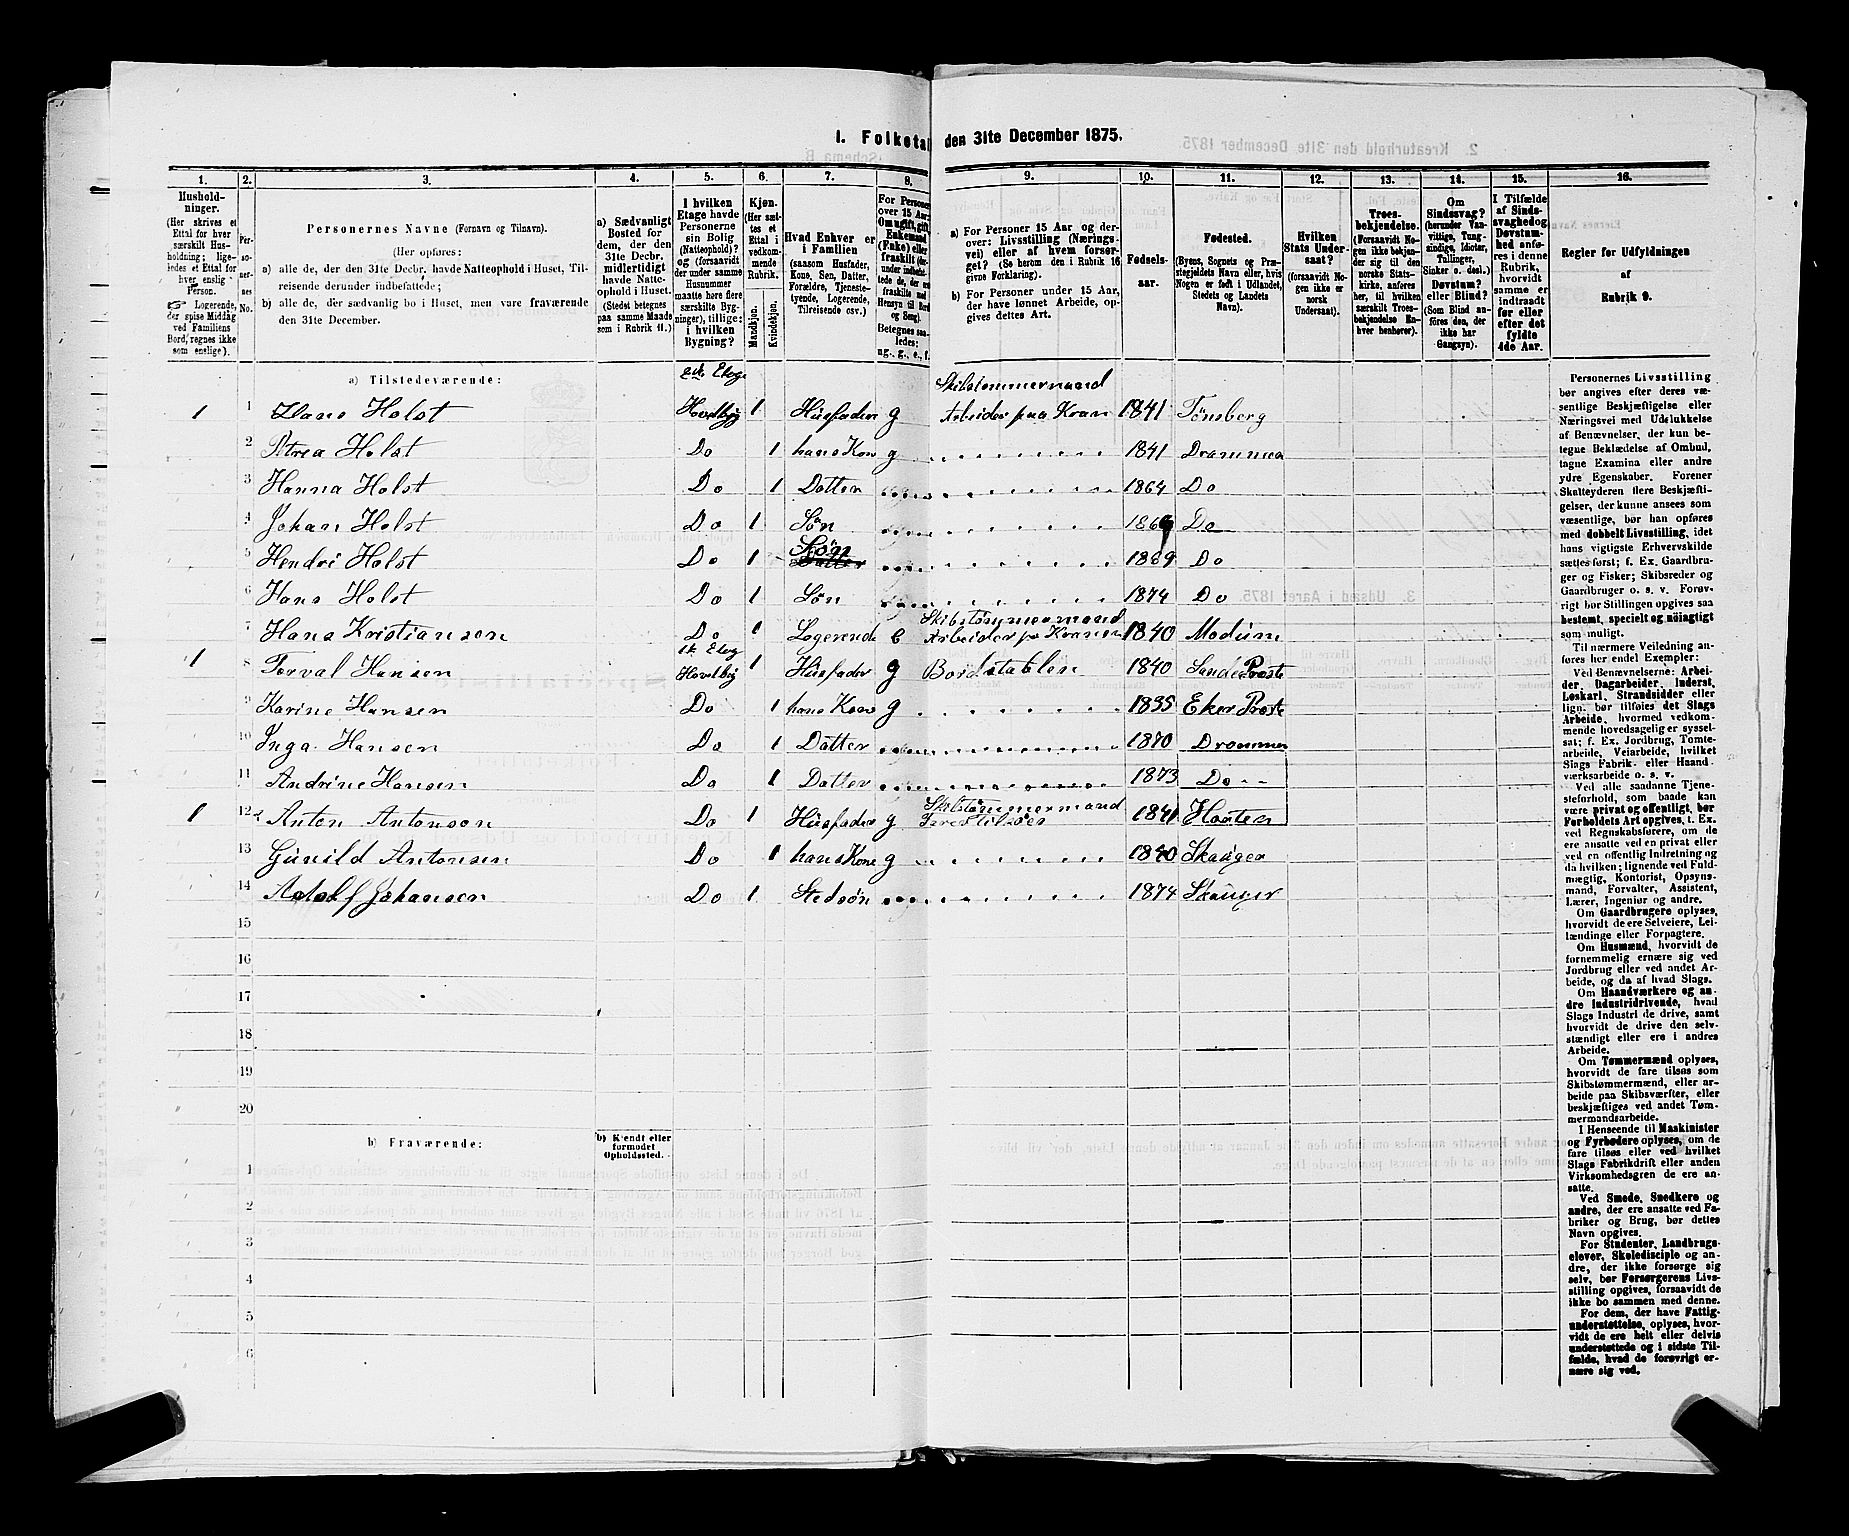 I. Folketal den 31te December 1875.
1. 2. 3. 4. 5. 6. 7. 8. 9. 10. 11. 12. 13. 14. 15. 16.
Hushold-
ninger.
(Her skrives et
Ettal for hver
særskilt Hus-
holdning; lige-
ledes et Ettal for
hver enslig
Person.
☞ Logerende,
der spise Middag
ved Familiens
Bord, regnes ikke
som enslige).
Per-
so-
ner-
nes
No.
Personernes Navne (Fornavn og Tilnavn).
(Her opføres:
a) alle de, der den 31te Decbr. havde Natteophold i Huset, Til-
reisende derunder indbefattede;
b) alle de, der sædvanlig bo i Huset, men vare fraværende
den 31te December.
a) Sædvanligt
Bosted for
dem, der den
31te Decbr.
midlertidigt
havde Natte-
ophold i Huset.
(Stedet betegnes
paa samme Maade
som i Rubrik 11.)
I hvilken
Etage havde
Personerne
sin Bolig
(Natteophold)?
og (forsaavidt
der under samme
Husnummer
maatte høre flere
særskilte Byg-
ninger), tillige:
i hvilken
Bygning?
Kjøn.
(Her sæt-
tes et
Ettal i
vedkom-
mende
Rubrik.
Mandkjøn.
Kvindekjøn.
Hvad Enhver er
i Familien
(saasom Husfader,
Kone, Søn, Datter,
Forældre, Tjeneste-
tyende, Logerende,
Tilreisende osv.)
For Personer
over 15 Aar:
Om ugift, gift,
Enkemand
(Enke) eller
fraskilt
Betegnes saa-
ledes:
ug., g., e., f.
a) For Personer 15 Aar og der-
over: Livsstilling (Nærings-
vei) eller af hvem forsør-
get? (Se herom den i Rubrik 16
givne Forklaring).
b) For Personer under 15 Aar,
der have lønnet Arbeide, op-
gives dettes Art.
Fødsels-
aar.
Fødested.
(Byens, Sognets og Præ-
stegjeldets Navn eller, hvis
Nogen er født i Udlandet,
Stedets og Landets
Navn).
Hvilken
Stats Under-
saat?
(forsaavidt No-
gen ikke er
norsk
Undersaat).
Troes-
bekjendelse.
(Forsaavidt No-
gen ikke bekjen-
der sig til den
norske Stats-
kirke, anføres
her, til hvilken
særskilt Troes-
bekjendelse En-
hver henhører).
Om
Sindssvag?
(herunder Van-
vittige, Tung-
sindige, Idioter,
Tullinger,
Sinker o. desl.)
Døvstum?
eller Blind?
(Som Blind an-
føres den, der
ikke har
Gangsyn).
I Tilfælde
af Sinds-
svaghed og
Døvstum-
hed anfø-
res i denne
Rubrik,
hvorvidt
samme er
indtraadt
før eller
efter det
fyldte
4de Aar.
Regler for Udfyldningen
af
Rubrik 9.
a) Tilstedeværende:
Etage Skibstømmermand
1 1 Hans Holst Hovedbyg 1 Husfader g Arbeider paa Kran 1841 Tønsberg
2 Petrea Holst Do 1 hans Kone g 1841 Drammen
3 Hanna Holst Do 1 Datter 1864 Do
4 Johan Holst Do 1 Søn Do
Søn
5 Hendri Holst Do 1 Datter 1869 Do
6 Hans Holst Do 1 Søn 1874 Do
Skibstømmermand
7 Hans Kristiansen Do 1 Logerende E Arbeider pa Kranen 1840 Modum
Etag
1 8 Torval Hansen Hovedbyg 1 Husfader g Bordstabler 1840 Sande Præste
9 Karine Hansen Do 1 hans Kone g 1835 Eker Præste
10 Inga Hansen Do 1 Datter 1870 Drammen
11 Andrine Hansen Do 1 Datter 1873 Do
Skibstømmermand
1 12 Anton Antonsen Do 1 Husfader g 1841
13 Gunild Antonsen Do 1 hans Kone g 1840 Skauger
14 Adolf Johansen Do 1 Stedsøn 1874 Skauger
15
16
17
18
19
20
b) Fraværende:
b) Kjendt eller
formodet
Opholdssted.
1
2
3
4
5
6
Personernes Livsstilling
bør angives efter deres væ-
sentlige Beskjæftigelse eller
Næringsvei med Udelukkelse
af Benævnelser, der kun be-
tegne Beklædelse af Ombud,
tagne Examina eller andre
ydre Egenskaber. Forener
Skatteyderen flere Beskjæfti-
gelser, der kunne ansees som
væsentlige, bør han opføres
med dobbelt Livsstilling, idet
hans vigtigste Erhvervskilde
sættes først; f. Ex. Gaardbru-
ger og Fisker; Skibsreder og
Gaardbruger o. s. v. Forøv-
rigt bør Stillingen opgives saa
bestemt, specielt og nøiagtigt
som muligt.
Til nærmere Veiledning an-
føres her endel Exempler:
Ved Benævnelserne: Arbei-
der, Dagarbeider, Inderst,
Løskarl, Strandsidder eller
lign. bør tilføies det Slags
Arbeide, hvormed vedkom-
mende hovedsagelig er syssel-
sat; f. Ex. Jordbrug, Tomte-
arbeide, Veiarbeide, hvilket
Slags Fabrik- eller Haand-
værksarbeide o. s. v.
Ved alle saadanne Tjene-
steforhold, som baade kan
være privat og offentligt, bør
Forholdets Art opgives, t. Ex.
ved Regnskabsførere, om de
ere ansatte ved en privat eller
ved en offentlig Indretning og
da hvilken; lignende ved Fuld-
mægtig, Kontorist, Opsyns-
mand, Forvalter, Assistent,
Lærer, Ingeniør og andre.
Om Gaardbrugere oplyses,
hvorvidt de ere Selveiere, Lei-
lændinge eller Forpagtere.
Om Husmænd, hvorvidt de
fornemmelig ernære sig ved
Jordbrug eller ved andet Ar-
beide, og da af hvad Slags.
Om Haandværkere og an-
dre Industridrivende, hvad
Slags Industri de drive, samt
hvorvidt de drive den selv-
stændigt eller ere i andres
Arbeide.
Om Tømmermænd oplyses,
hvorvidt de fare tilsøs som
Skibstømmermænd, eller ar-
beide paa Skibsværfter, eller
beskjæftiges ved andet Tøm-
mermandsarbeide.
I Henseende til Maskinister
og Fyrbødere oplyses, om de
fare tilsøs eller ved hvilket
Slags Fabrikdrift eller anden
Virksomhedsgren de ere an-
satte.
Ved Smede, Snedkere og
andre, der ere ansatte ved Fa-
briker og Brug, bør dettes
Navn opgives.
For Studenter, Landbrugs-
elever, Skoledisciple og an-
dre, der ikke forsørge sig
selv, bør Forsørgerens Livs-
stilling opgives, forsaavidt de
ikke bo sammen med denne.
For dem, der have Fattig-
understøttelse, oplyses, hvor-
vidt de ere helt eller delvis
understøttede og i sidste Til-
fælde, hvad de forøvrigt er-
nære sig ved.